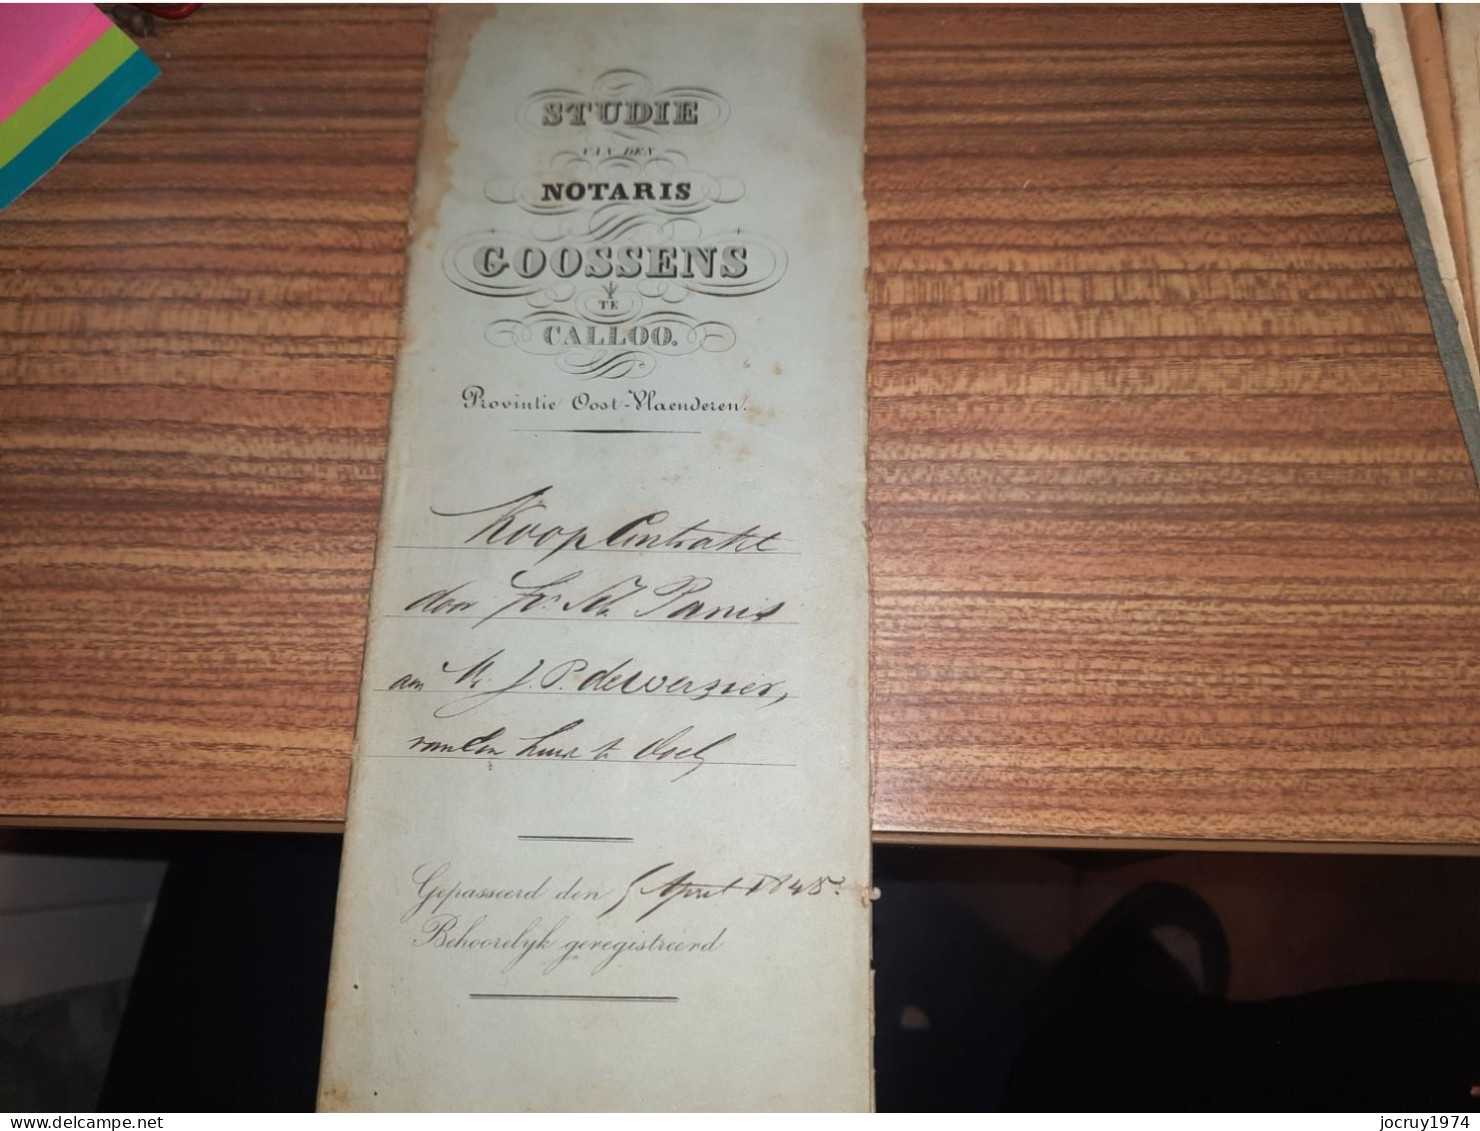 STUDIE
VAN DEN
NOTARIS
GOOSSENS
TE
CALLOO.
Provintie Oost-Vlaenderen.
Koop Contrakt
door Panis
aan Mr. J. P. deweerver,
te
Gepasseerd den 5 April 1848.
Behoorelyk geregistreerd
jocruy1974